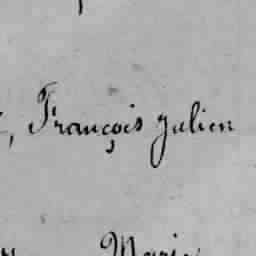 , François Julien
Marie